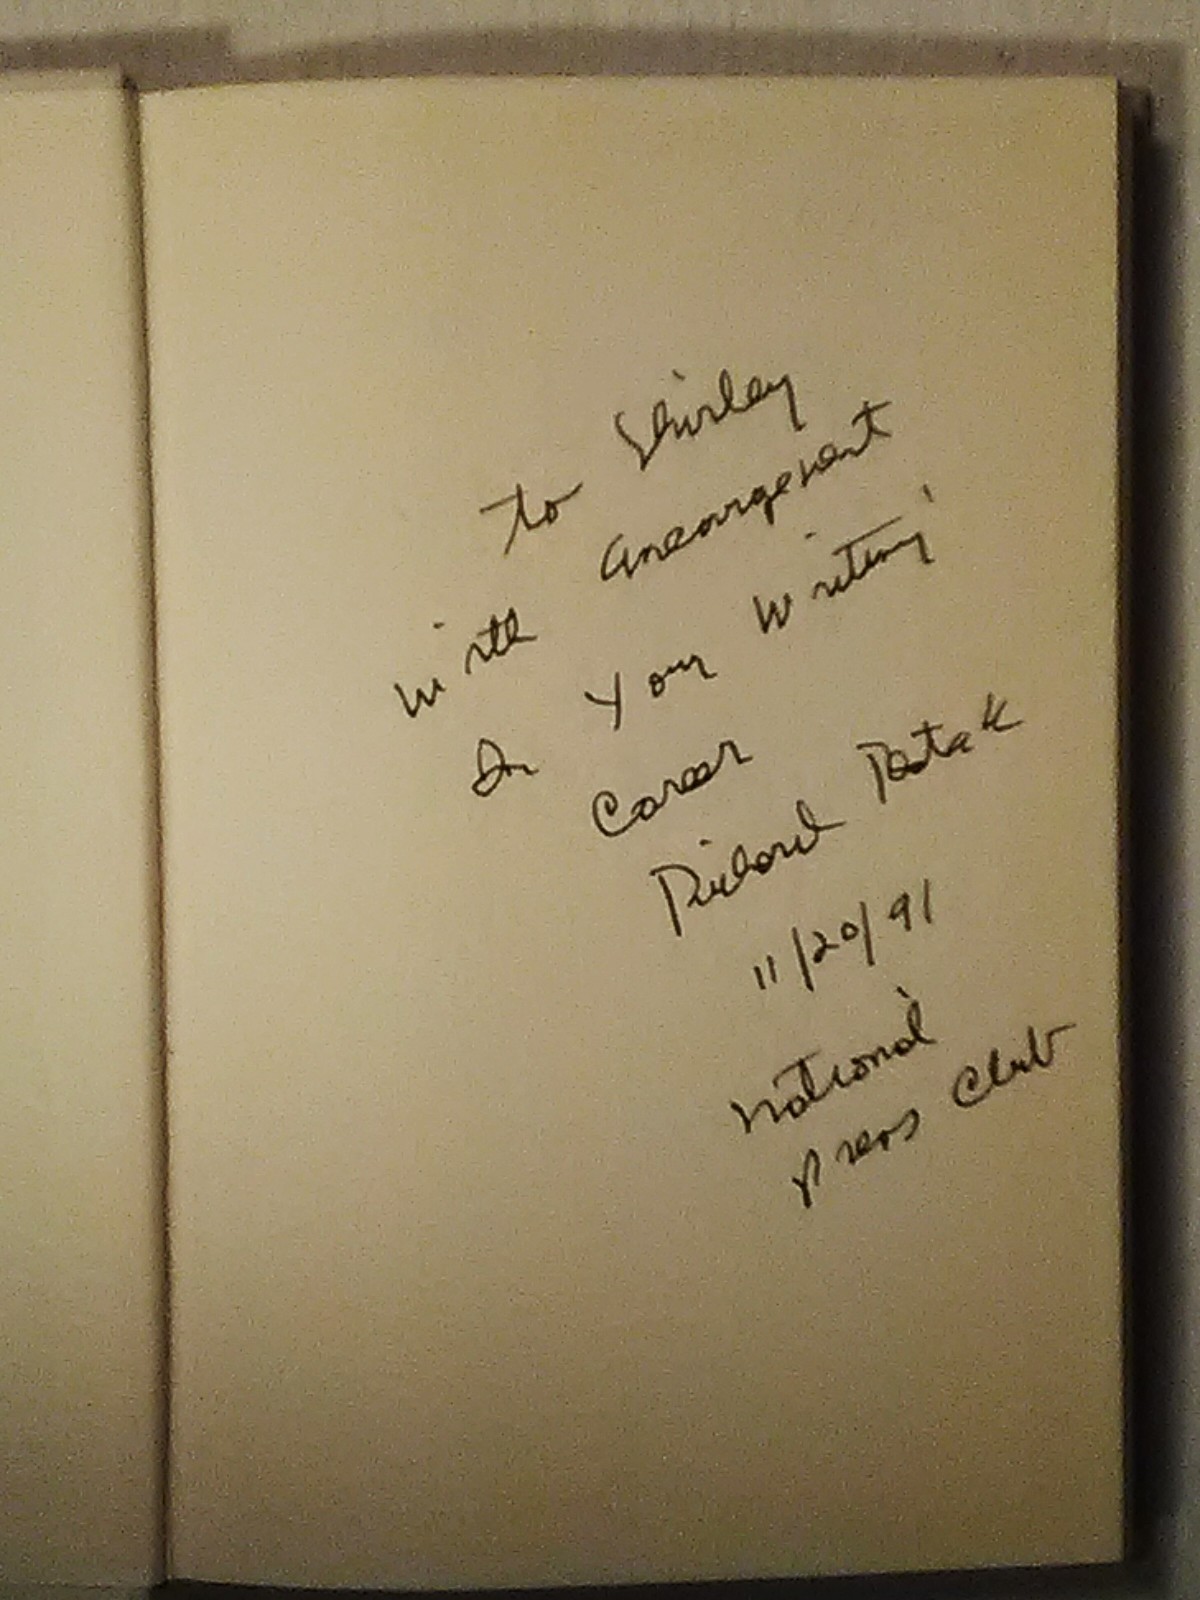 To Shirley
With encouragement
In your Writing
Career
Richard Restak
11/20/91
National
Press Club